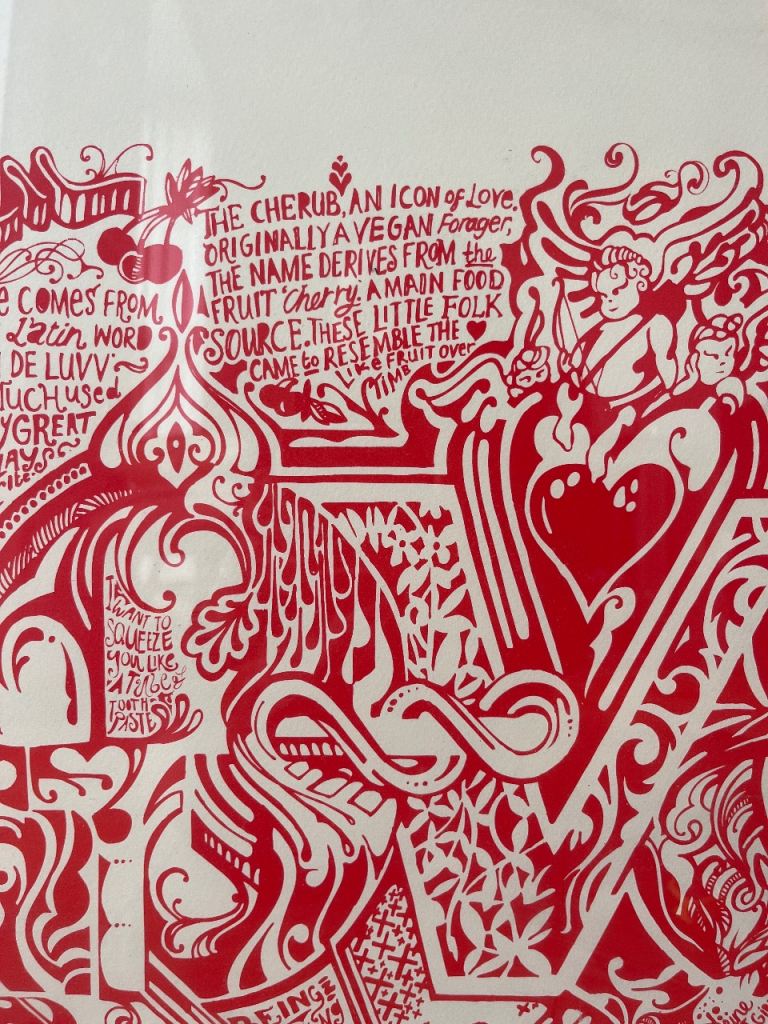 THE CHERUB, AN ICON of Love.
ORIGINALLY A VEGAN Forager,
THE NAME DERIVES FROM the
FRUIT 'Cherry. A MAIN FOOD
SOURCE. THESE LITTLE FOLK
CAME to RESEMBLE THE
LIKE FRUIT over
TIME
E COMES FROM
Latin WORD
DE LUVV'
TUCH used
Y GREAT
I WANT TO
SQUEEZE
YOU LIKE
A TUBE of
TOOTH
PASTE
BEING